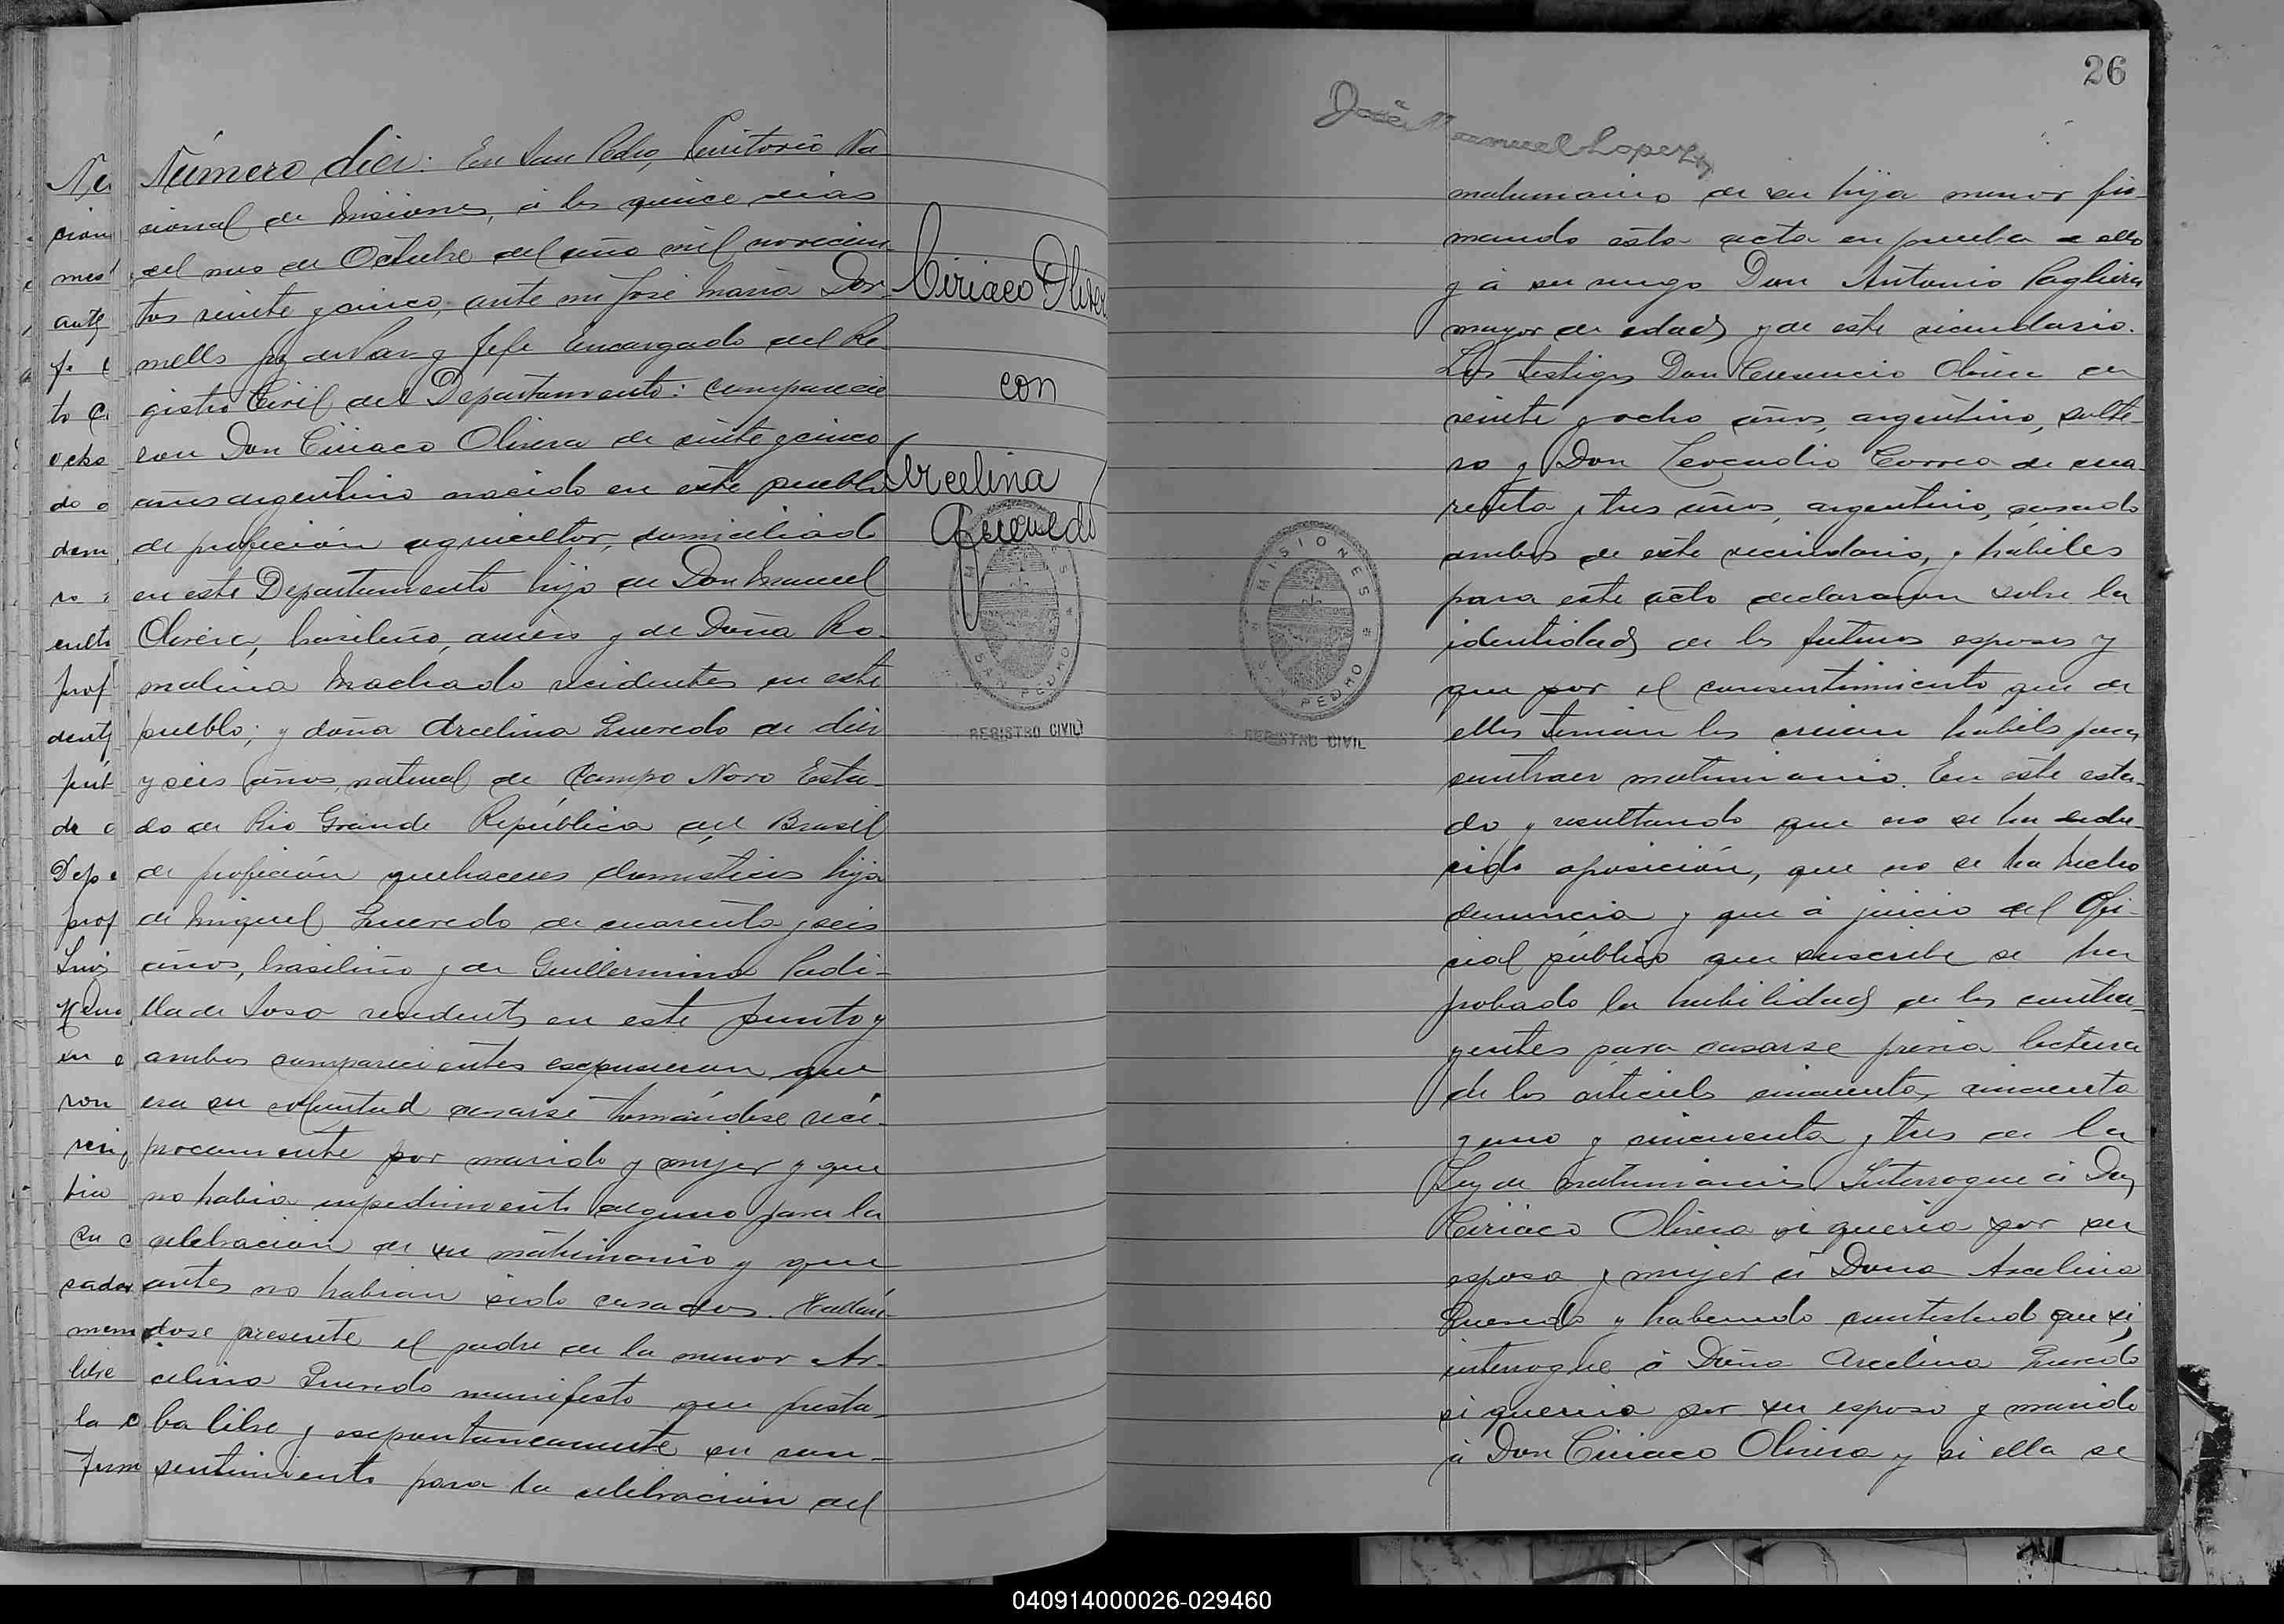 Número diez: En San Pedro, Territorio Na-
cional de Misiones, á los quince dias
del mes de Octubre del año mil novecien-
tos veinte y cinco, ante mi José Maria Dor-
nells Juez de Paz y Jefe Encargado del Re-
gistro Civil del Departamento: comparecie
ron Don Ciriaco Olivera de veinte y cinco
años argentino nacido en este pueblo
de profecion agricultor, domiciliado
en este Departamento hijo de Don Manuel
Olivera, brasileño, y de Doña Ro-
malina Machado recidentes en este
pueblo; y doña Arcelina Quevedo de diez
y seis años, natural de Campo Novo Esta-
do de Rio Grande República del Brasil
de profecion quehaceres domesticos hija
de Miguel Quevedo de cuarenta y seis
años, brasileño y de Guillermina Padi-
lla de Sosa residentes en este punto y
ambos comparecientes expusieron que
era su voluntad casarse tomándose reci-
procamente por marido y mujer y que
no habia impedimento alguno para la
celebracion de su matrimonio y que
antes no habian sido casados. Hallán-
dose presente el padre de la menor Ar-
celina Quevedo manifesto que presta-
ba libre y espontaneamente su con-
sentimiento para la celebracion del
Ciriaco Olivera
con
Arcelina
Quevedo
MISIONES
SAN PEDRO
REGISTRO CIVIL
26
José Manuel Lopez
matrimonio de su hija menor fir-
mando esta acta en prueba de ello
y á su ruego Don Antonio Pagliera
mayor de edad y de este vecindario.
Los testigos Don Cresencio Olivera de
veinte y ocho años, argentino, solte-
ro y Don Leocadio Correa de cua-
renta y tres años, argentino, casado
ambos de este vecindario, y hábiles
para este acto declararon sobre la
identidad de los futuros esposos y
que por el consentimiento que de
ellos tenian los creian hábiles para
contraer matrimonio. En este esta-
do y resultando que no se ha dedu-
cido oposición, que no se ha hecho
denuncia y que á juicio del Ofi-
cial público que suscribe se ha
probado la habilidad de los contra-
yentes para casarse previa lectura
de los articulos cincuenta, cincuenta
y uno y cincuenta y tres de la
Ley de Matrimonio. Interrogue á Don
Ciriaco Olivera si queria por su
esposa y mujer á Dona Arcelina
Quevedo y habiendo contestado que si,
interrogue á Doña Arcelina Quevedo
si queria por su esposo y marido
á Don Ciriaco Olivera y si ella se
MISIONES
SAN PEDRO
REGISTRO CIVIL
040914000026-029460